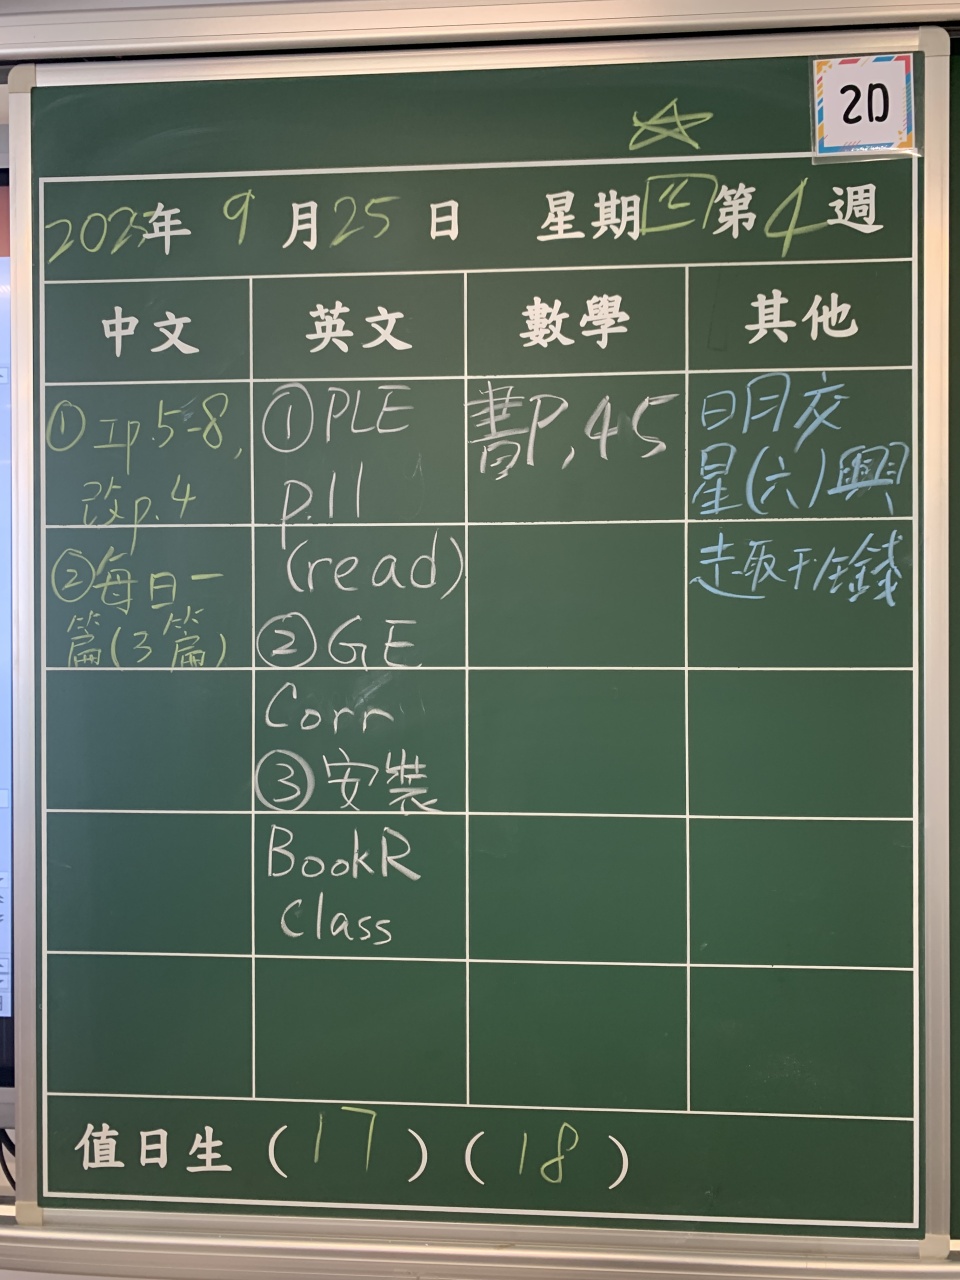 2D
2025年 9 月 25 日 星期四 第 4 週
中文 英文 數學 其他
① 工p.5-8,
改p.4
② 每日一
篇(3篇)
① PLE
p.11
(read)
② GE
Corr
③ 安裝
BookR
Class
書P.45
日月交
星(六)興
趣取干金錢
值日生 (17)(18)